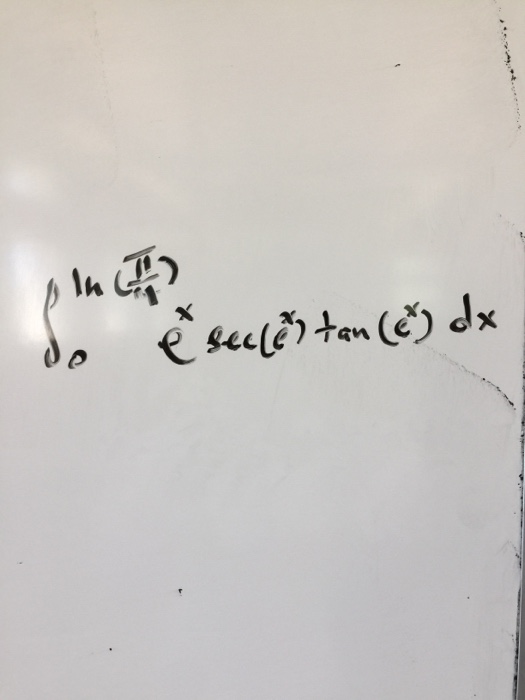 ∫₀^{ln(π/4)} e^x sec(e^x) tan(e^x) dx